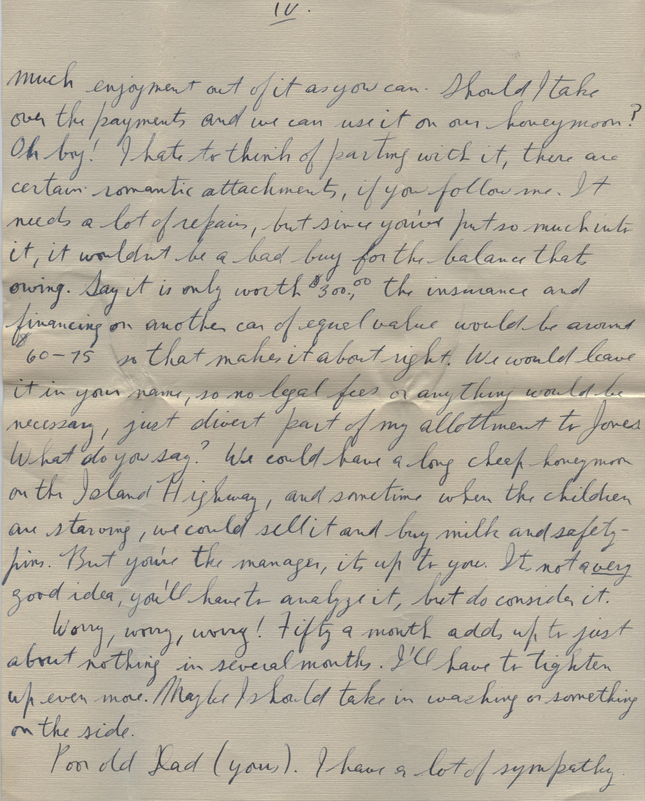 IV.
much enjoyment out of it as you can. Should I take
over the payments and we can use it on our honeymoon?
Oh boy! I hate to think of parting with it, there are
certain romantic attachments, if you follow me. It
needs a lot of repairs, but since you've put so much into
it, it wouldn't be a bad buy for the balance thats
owing. Say it is only worth $300.00, the insurance and
financing on another car of equal value would be around
$60-75 so that makes it about right. We would leave
it in your name, so no legal fees or anything would be
necessary, just divert part of my allottment to Jones
What do you say? We could have a long cheap honeymoon
on the Island Highway, and sometime when the children
are starving, we could sell it and buy milk and safety-
pins. But you're the manager, its up to you. It not a very
good idea, you'll have to analyze it, but do consider it.
Worry, worry, worry! Fifty a month adds up to just
about nothing in several months. I'll have to tighten
up even more. Maybe I should take in washing or something
on the side.
Poor old Dad (yours). I have a lot of sympathy